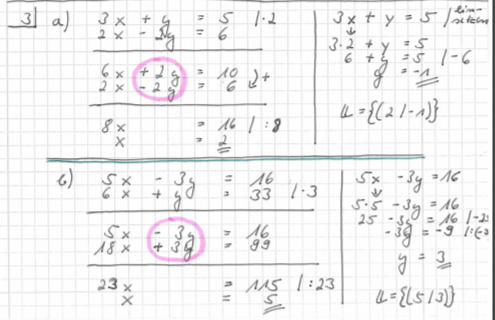 3 a) 3x + y = 5 | · 2
2x - 2y = 6
6x + 2y = 10
2x - 2y = 6 +
8x = 16 | : 8
x = 2
3x + y = 5 |
3·2 + y = 5
6 + y = 5 | -6
y = -1
L = {(2|-1)}
b) 5x - 3y = 16
6x + y = 33 | · 3
5x - 3y = 16
18x + 3y = 99
23x = 115 | : 23
x = 5
5x - 3y = 16
5·5 - 3y = 16
25 - 3y = 16
-3y = -9
y = 3
L = {(5|3)}